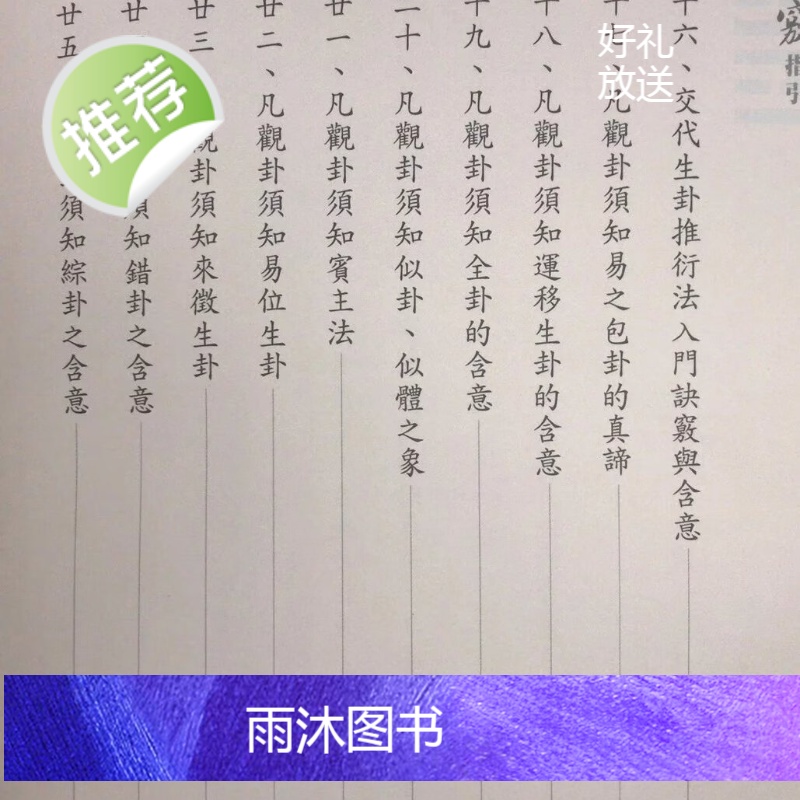 竅指引
十六、交代生卦推衍法入門訣竅與含意
十七、凡觀卦須知易之包卦的真諦
十八、凡觀卦須知運移生卦的含意
十九、凡觀卦須知全卦的含意
二十、凡觀卦須知似卦、似體之象
廿一、凡觀卦須知賓主法
廿二、凡觀卦須知易位生卦
廿三 觀卦須知來徵生卦
廿 須知錯卦之含意
廿五 須知綜卦之含意
好礼
放送
推荐
雨沐图书